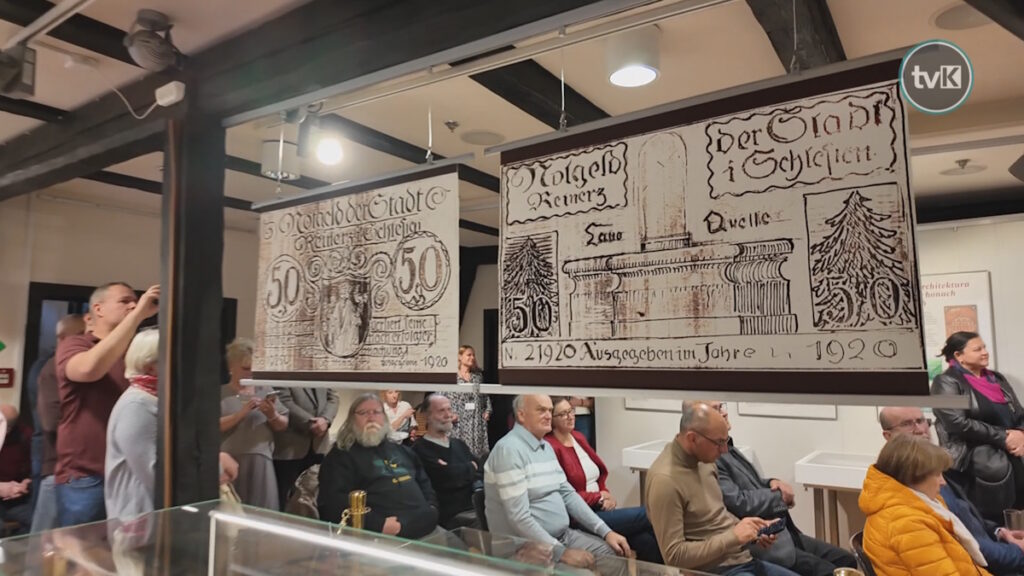 tvK
Notgeld der Stadt
Reinerz i Schlesien
50
50
1920
Notgeld
Reinerz
der Stadt
i Schlesien
Laue Quelle
50
50
N. 21920 Ausgegeben im Jahre 1920
architektura